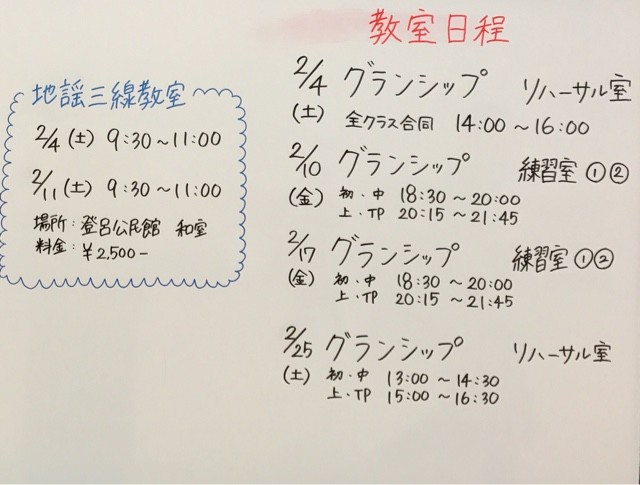 教室日程
2/4 グランシップ リハーサル室
(土) 全クラス合同 14:00〜16:00
2/10 グランシップ 練習室①②
(金) 初・中 18:30〜20:00
上・TP 20:15〜21:45
2/17 グランシップ 練習室①②
(金) 初・中 18:30〜20:00
上・TP 20:15〜21:45
2/25 グランシップ リハーサル室
(土) 初・中 13:00〜14:30
上・TP 15:00〜16:30
地謡三線教室
2/4(土) 9:30〜11:00
2/11(土) 9:30〜11:00
場所:登呂公民館 和室
料金:¥2,500-